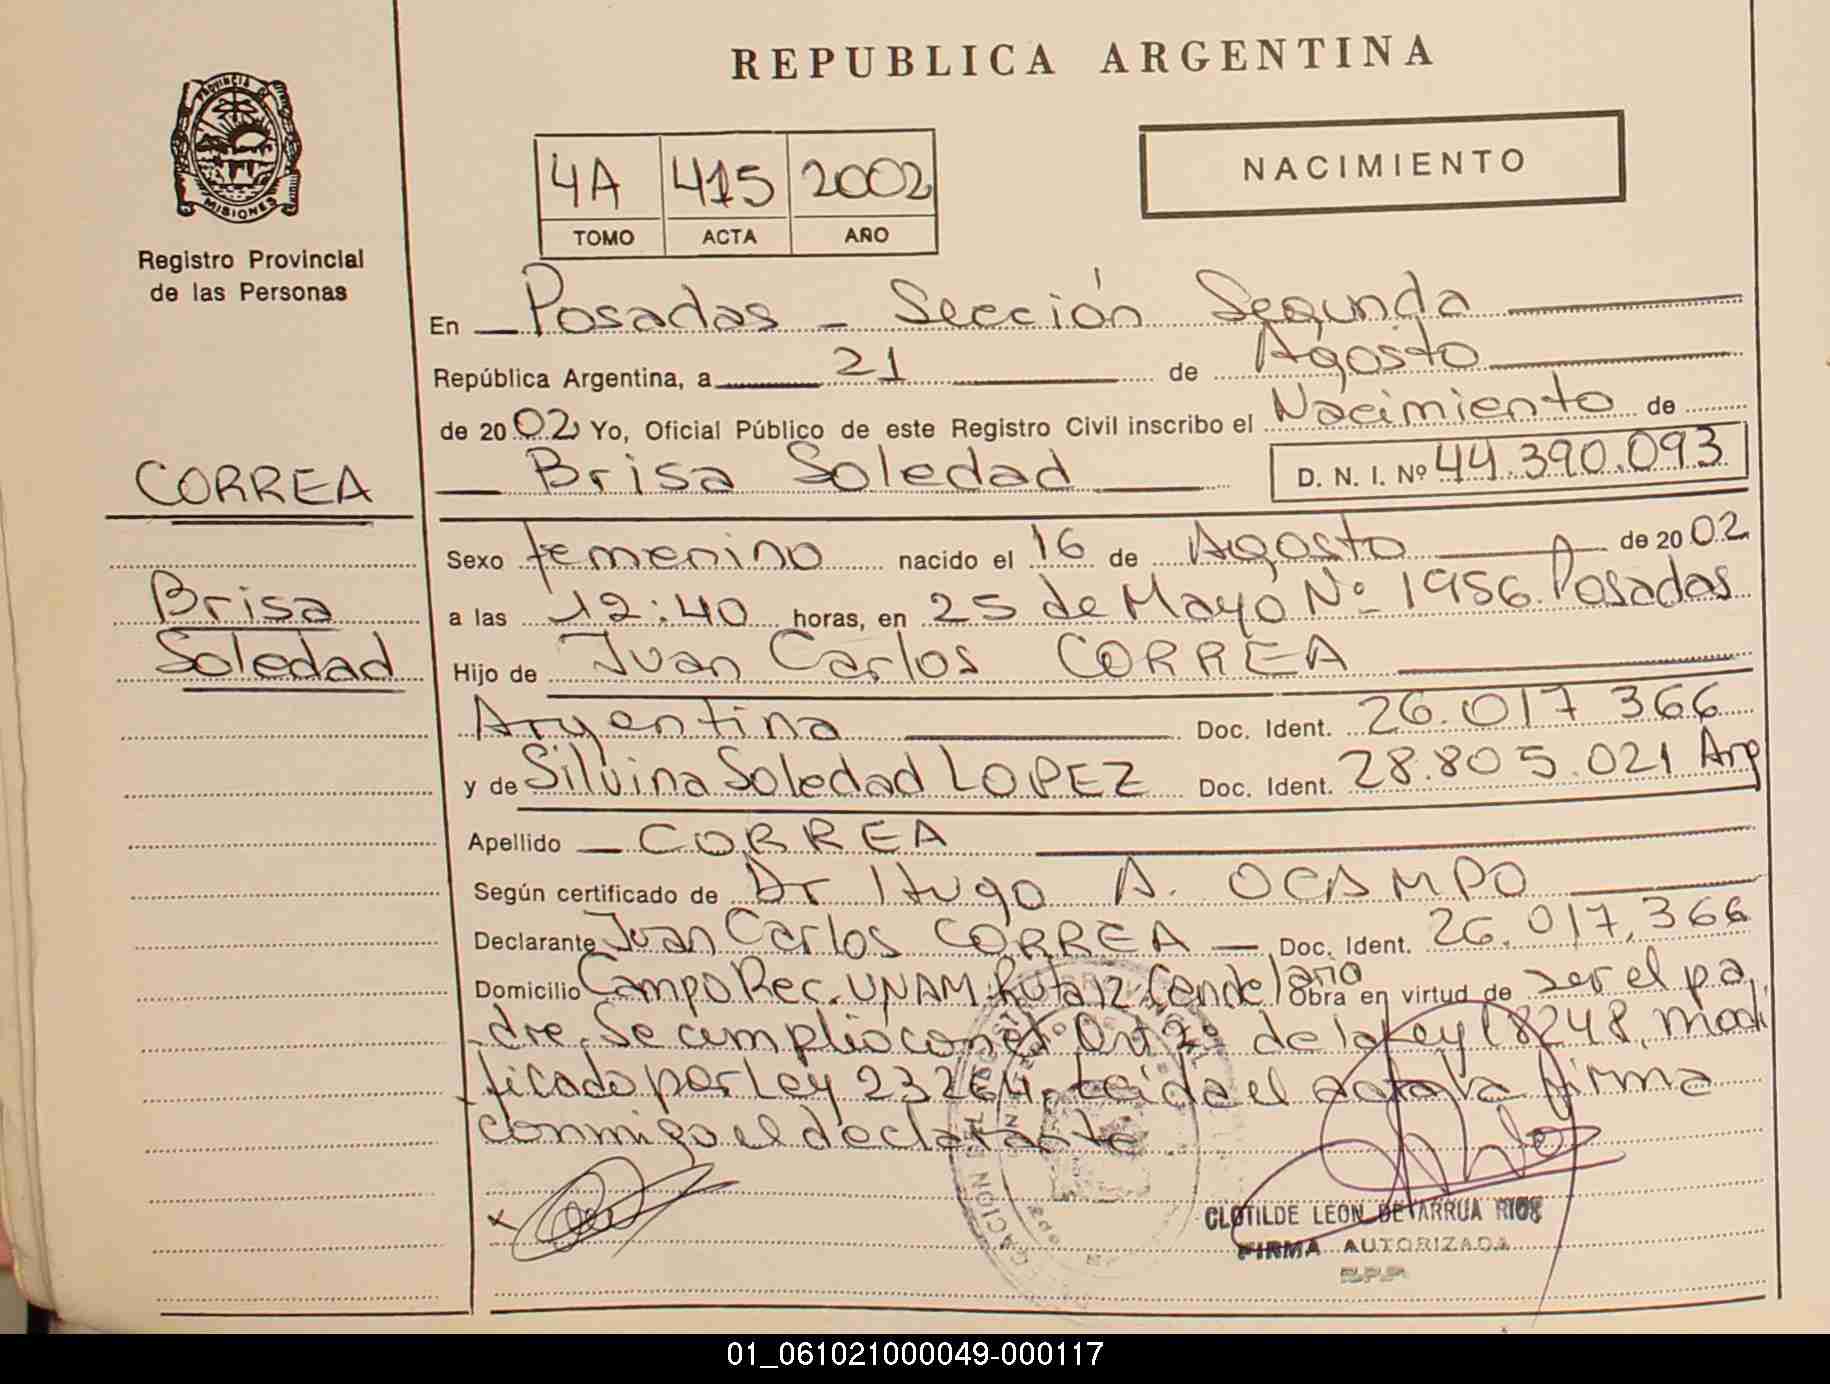 REPUBLICA ARGENTINA
PROVINCIA DE
MISIONES
Registro Provincial
de las Personas
4A 415 2002
TOMO ACTA AÑO
NACIMIENTO
En Posadas - Sección Segunda
República Argentina, a 21 de Agosto
de 2002 Yo, Oficial Público de este Registro Civil inscribo el Nacimiento de
Brisa Soledad D. N. I. Nº 44.390.093
CORREA
Brisa
Soledad
Sexo femenino nacido el 16 de Agosto de 2002
a las 12:40 horas, en 25 de Mayo Nº 1956 Posadas
Hijo de Juan Carlos CORREA
Argentina Doc. Ident. 26.017 366
y de Silvina Soledad LOPEZ Doc. Ident. 28.805.021 Arg
Apellido CORREA
Según certificado de Dr Hugo A. OCAMPO
Declarante Juan Carlos CORREA Doc. Ident. 26.017.366
Domicilio Campo Rec. UNAM. Ruta 12 Candelaria Obra en virtud de ser el pa
dre. Se cumplio con el Art 2º de la Ley 18248, modi
ficado por Ley 23264. Leída el acta la firma
conmigo el declarante
CLOTILDE LEON DE ARRUA RIOS
FIRMA AUTORIZADA
R.P.P.
01_061021000049-000117